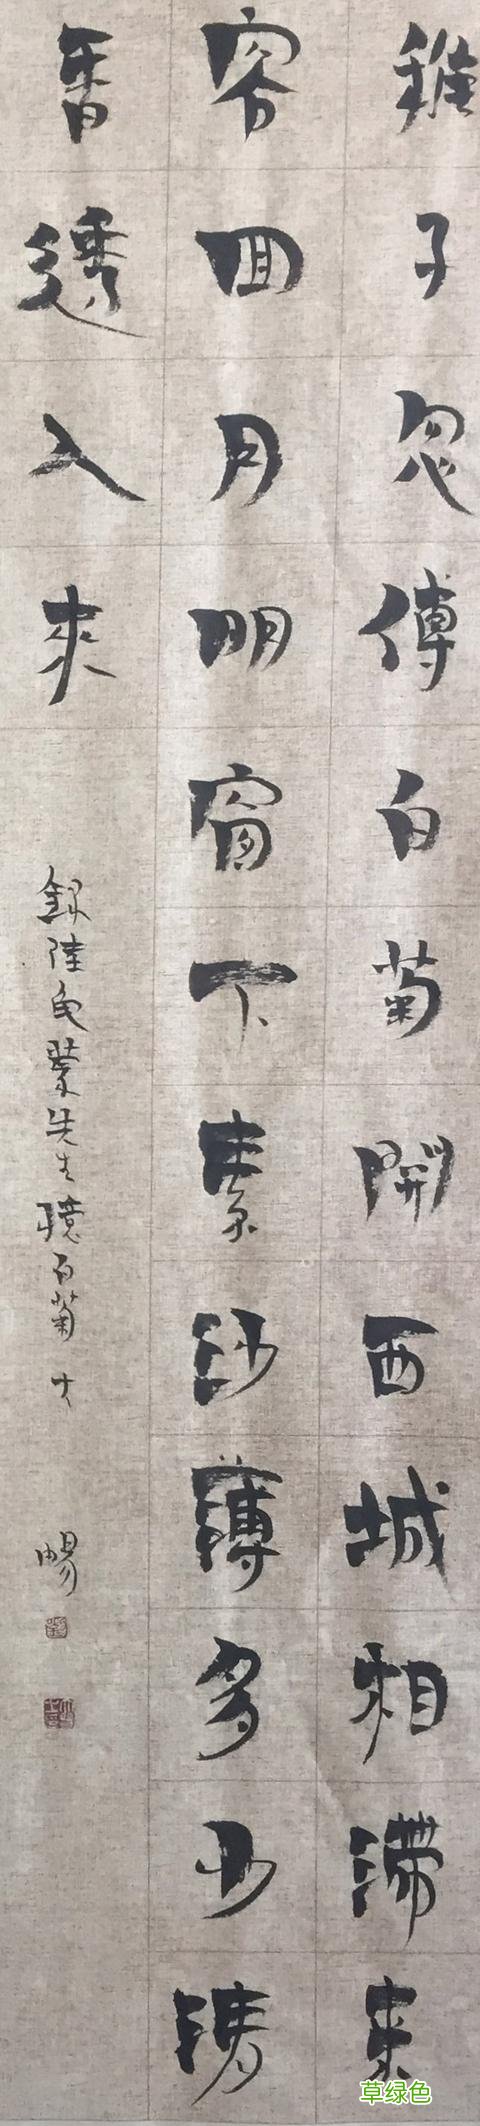 稚子忽傳白菊開西城相滯未
容回月明窗下素沙薄多少清
香透入來
錄陸龜蒙先生憶白菊
暢
草绿色